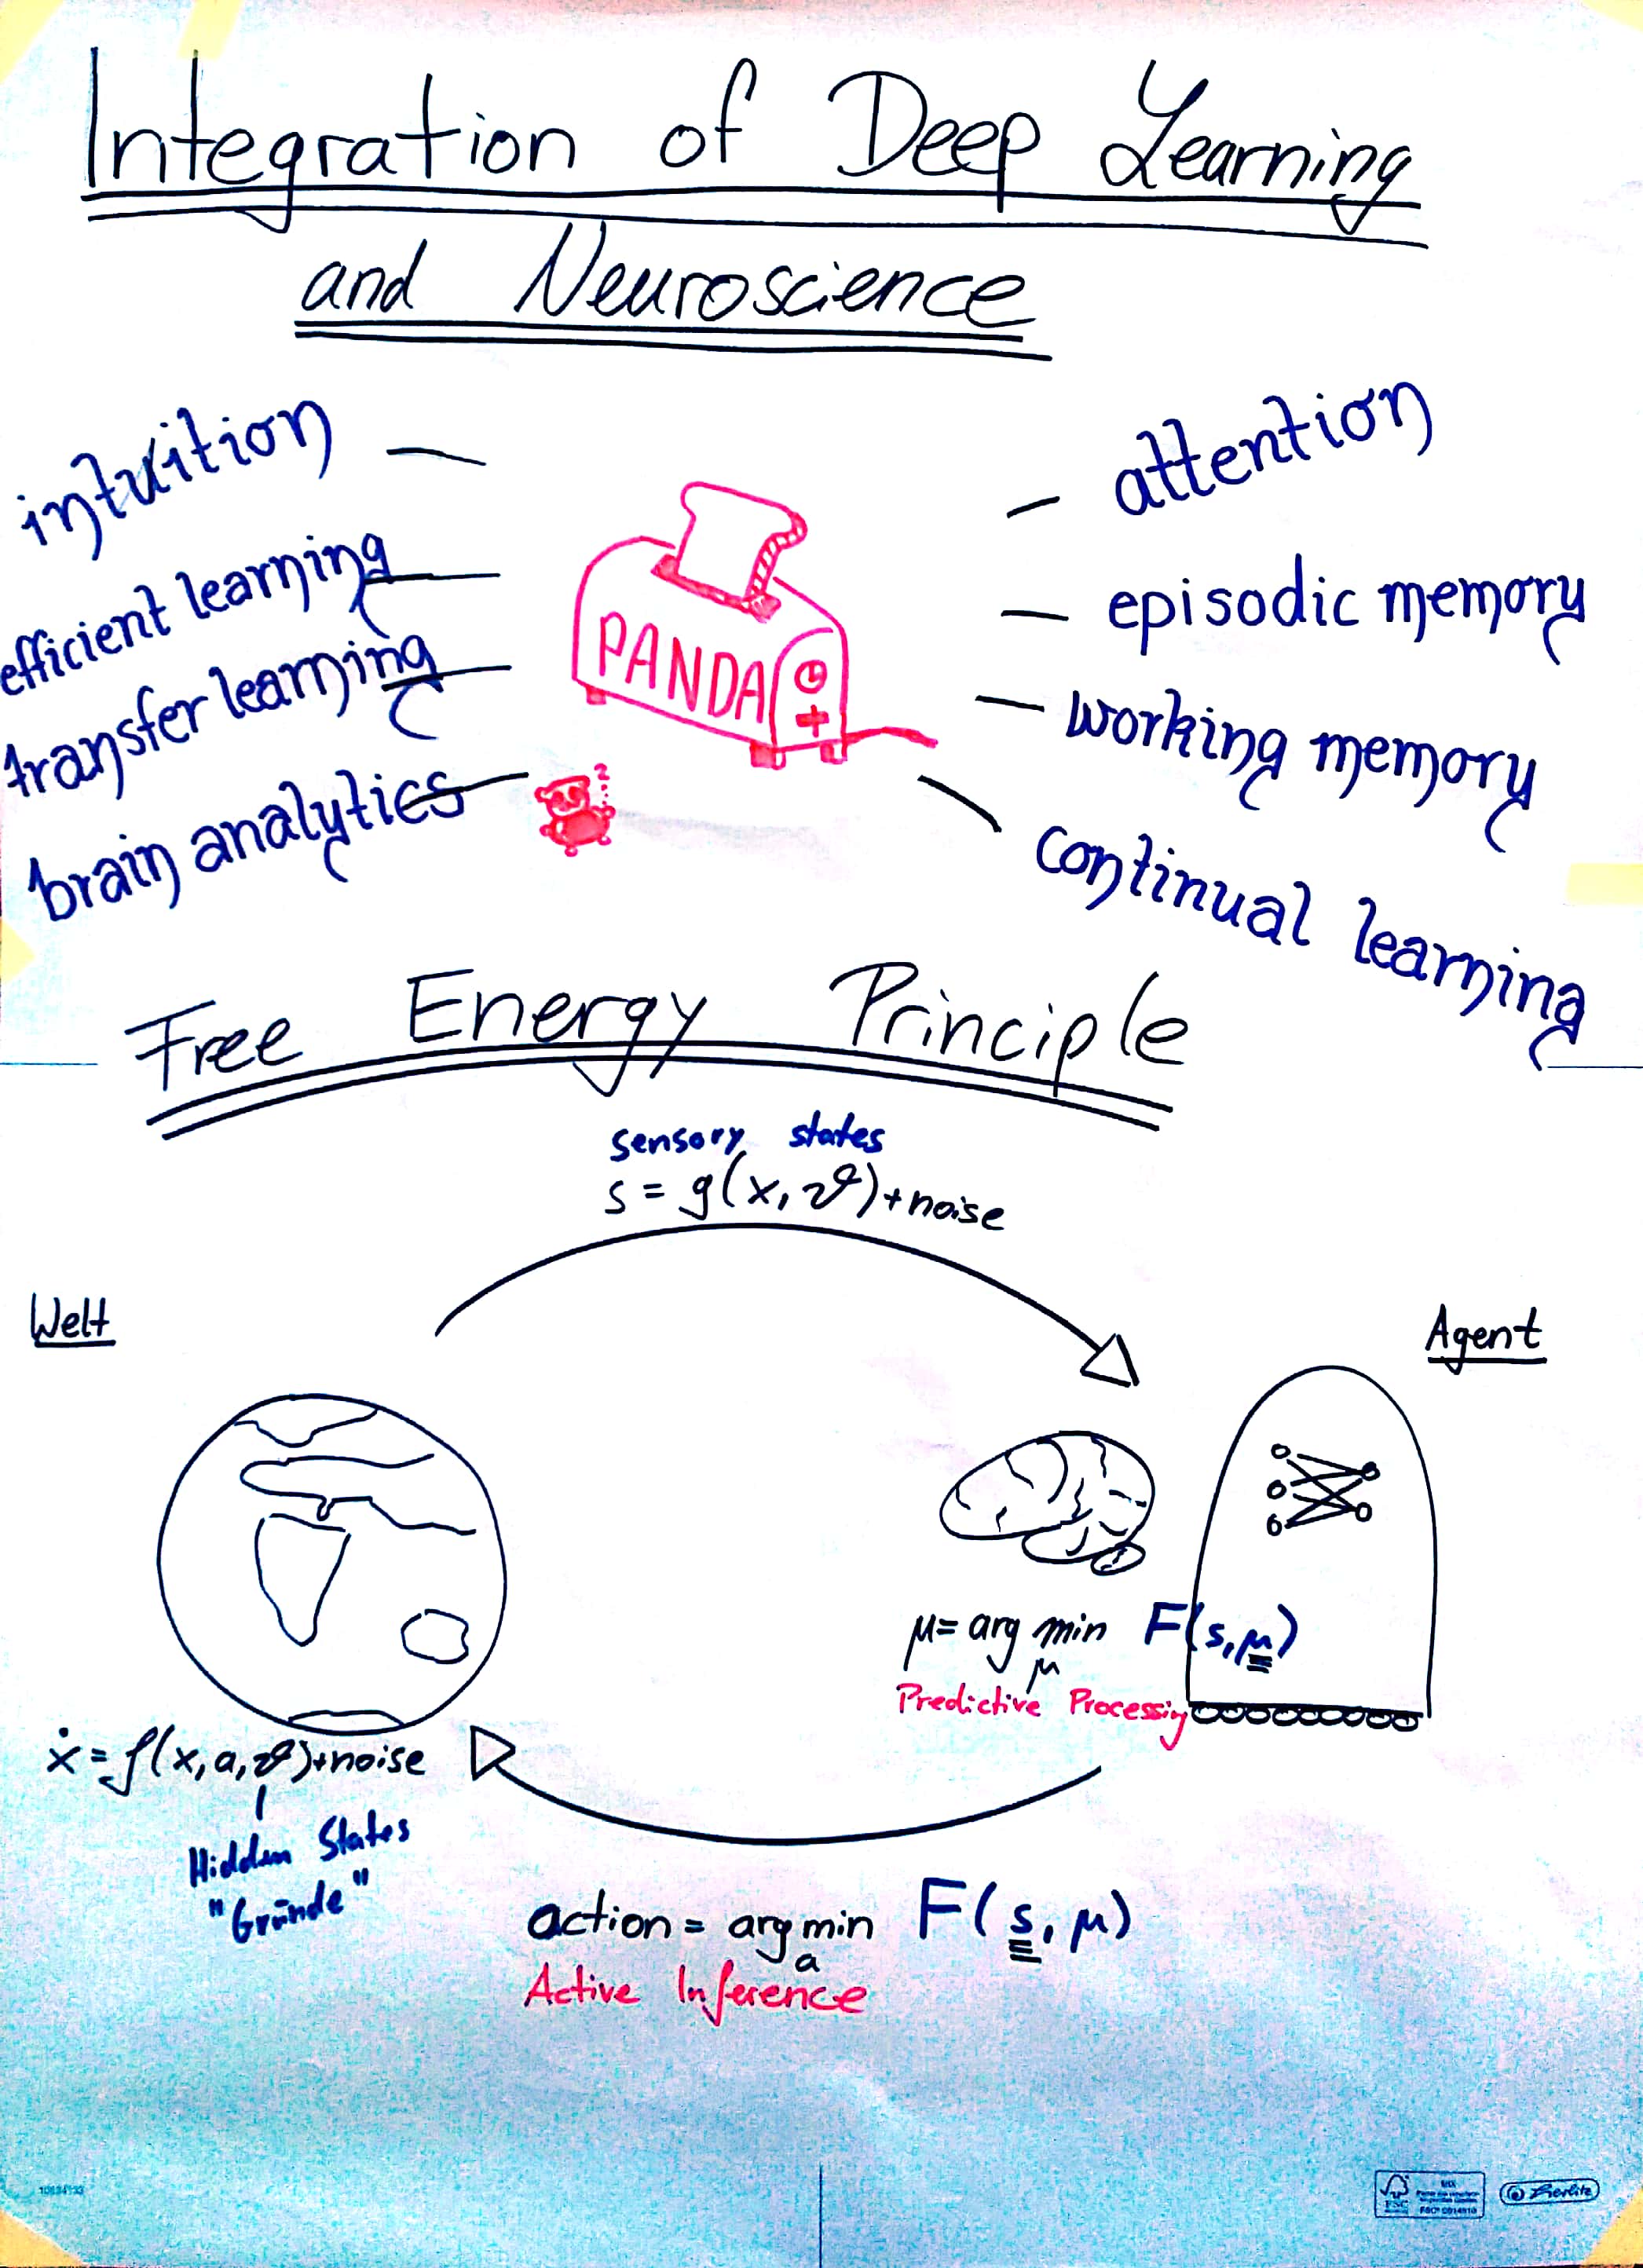 Integration of Deep Learning
and Neuroscience
intuition
efficient learning
transfer learning
brain analytics
PANDA
?
attention
episodic memory
working memory
continual learning
Free Energy Principle
sensory states
s = g(x, ϑ) + noise
Welt
Agent
μ = arg min F(s, μ)
μ
Predictive Processing
ẋ = f(x, a, ϑ) + noise
Hidden States
"Gründe"
action = arg min F(s, μ)
a
Active Inference
FSC
MIX
Herlitz